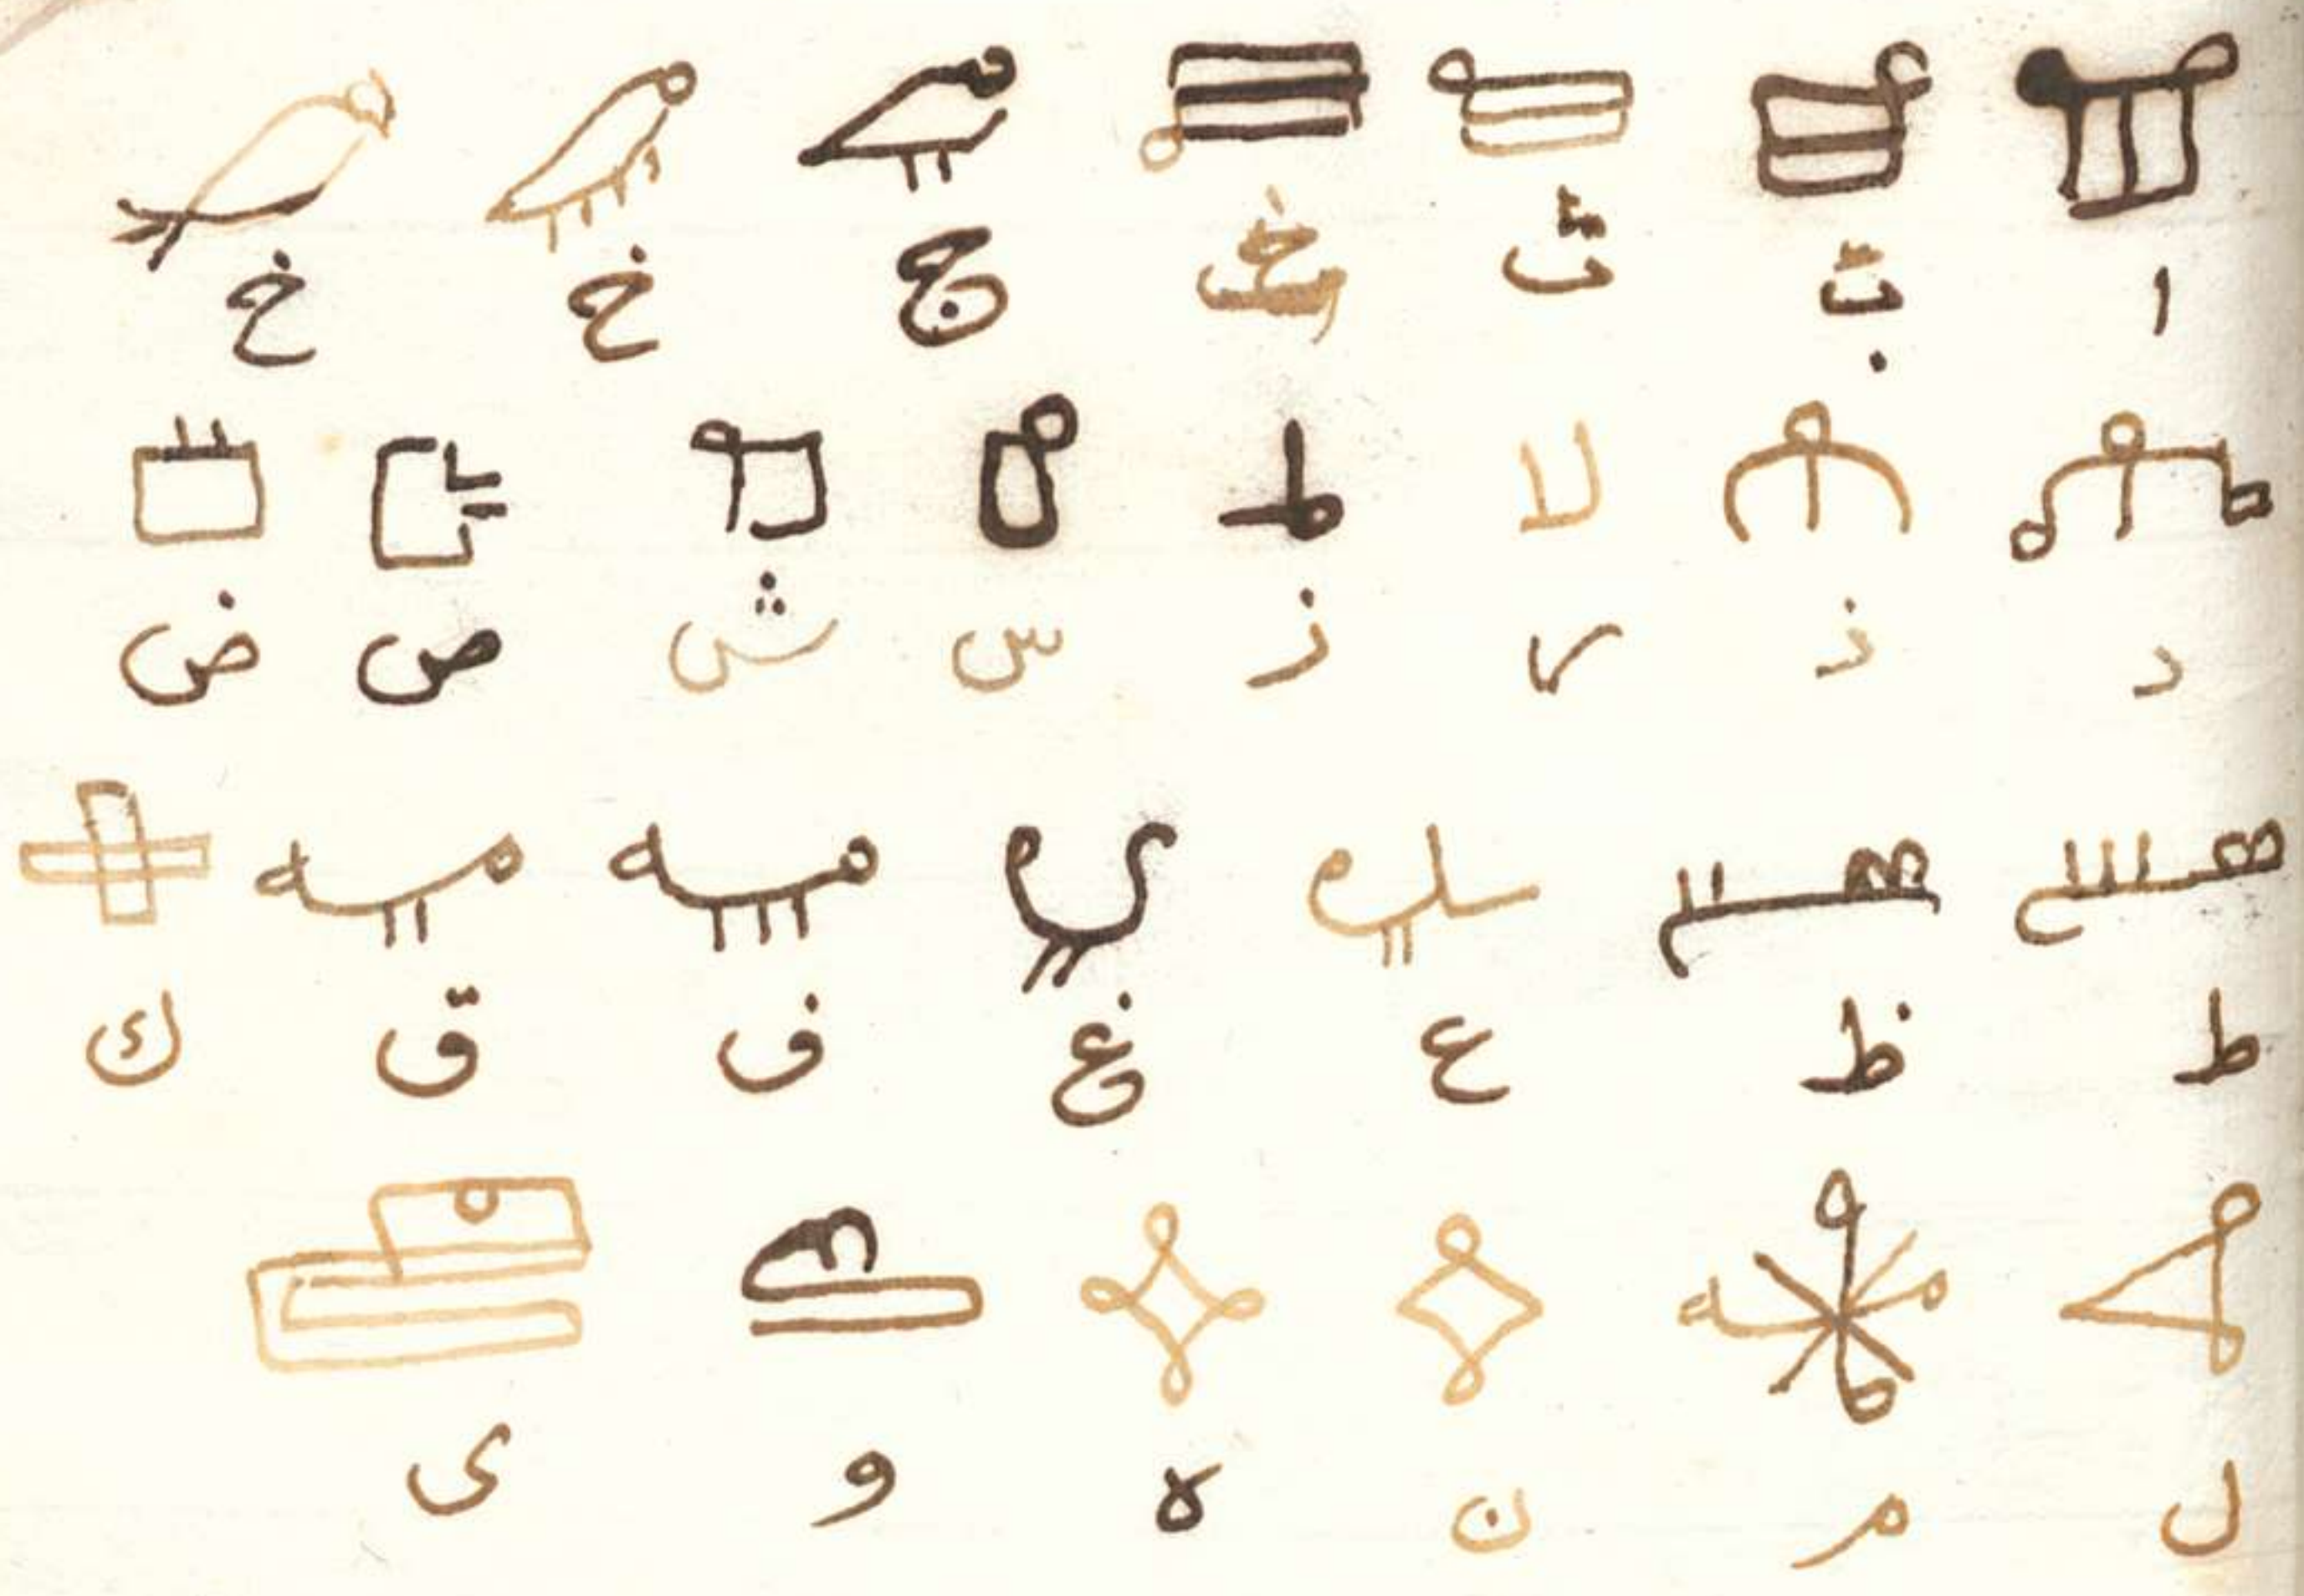 ا ت ث ج خ خ
د ذ ر ز س ش ص ض
ط ظ ع غ ف ق ك
ل م ن ه و ى